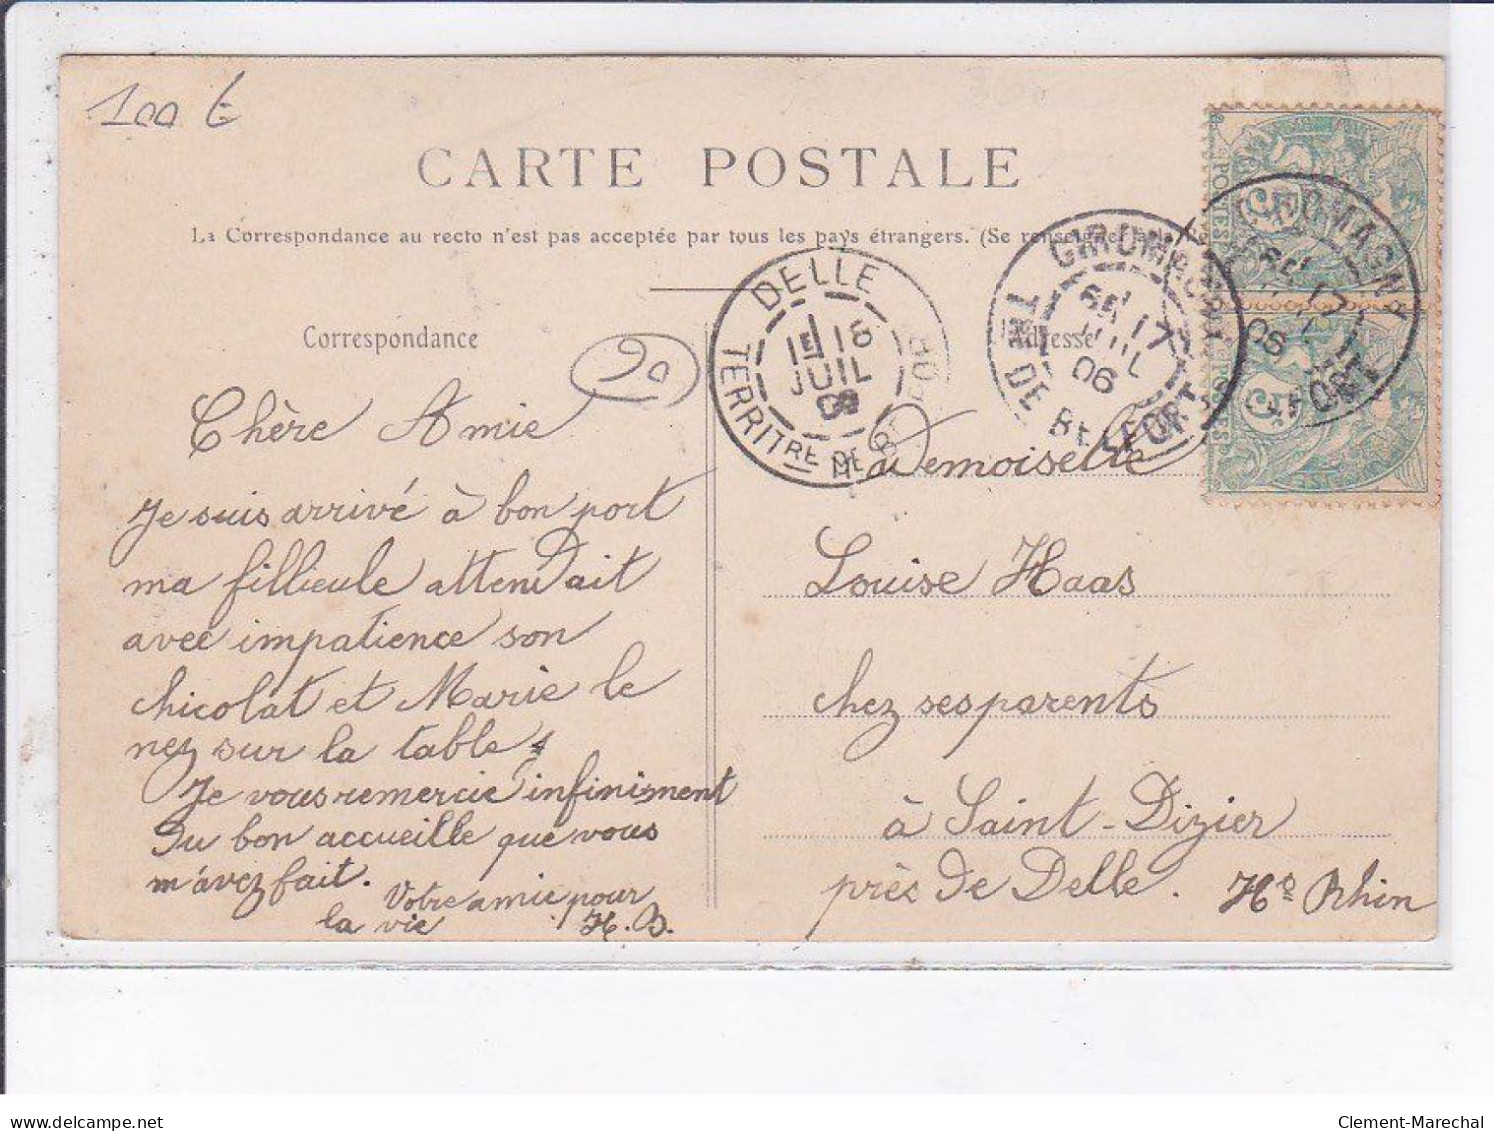 100 €
CARTE POSTALE
La Correspondance au recto n'est pas acceptée par tous les pays étrangers. (Se renseigner à la
Correspondance
Adresse
90
DELLE
1E 18
JUIL
TERRITRE DE BE
GIROMAGNY
17
JUIL
06
TRE DE BELFORT
GIROMAGNY
17
06
POSTES
5
5
Chère Amie
Je suis arrivé à bon port
ma fillieule attendait
avec impatience son
chicolat et Marie le
nez sur la table,
Je vous remercie infiniment
du bon accueille que vous
m'avez fait.
Votre amie pour
la vie H. B.
Mademoiselle
Louise Haas
chez ses parents
à Saint-Dizier
près de Delle. Ht Rhin
delcampe.net
Clement-Marechal